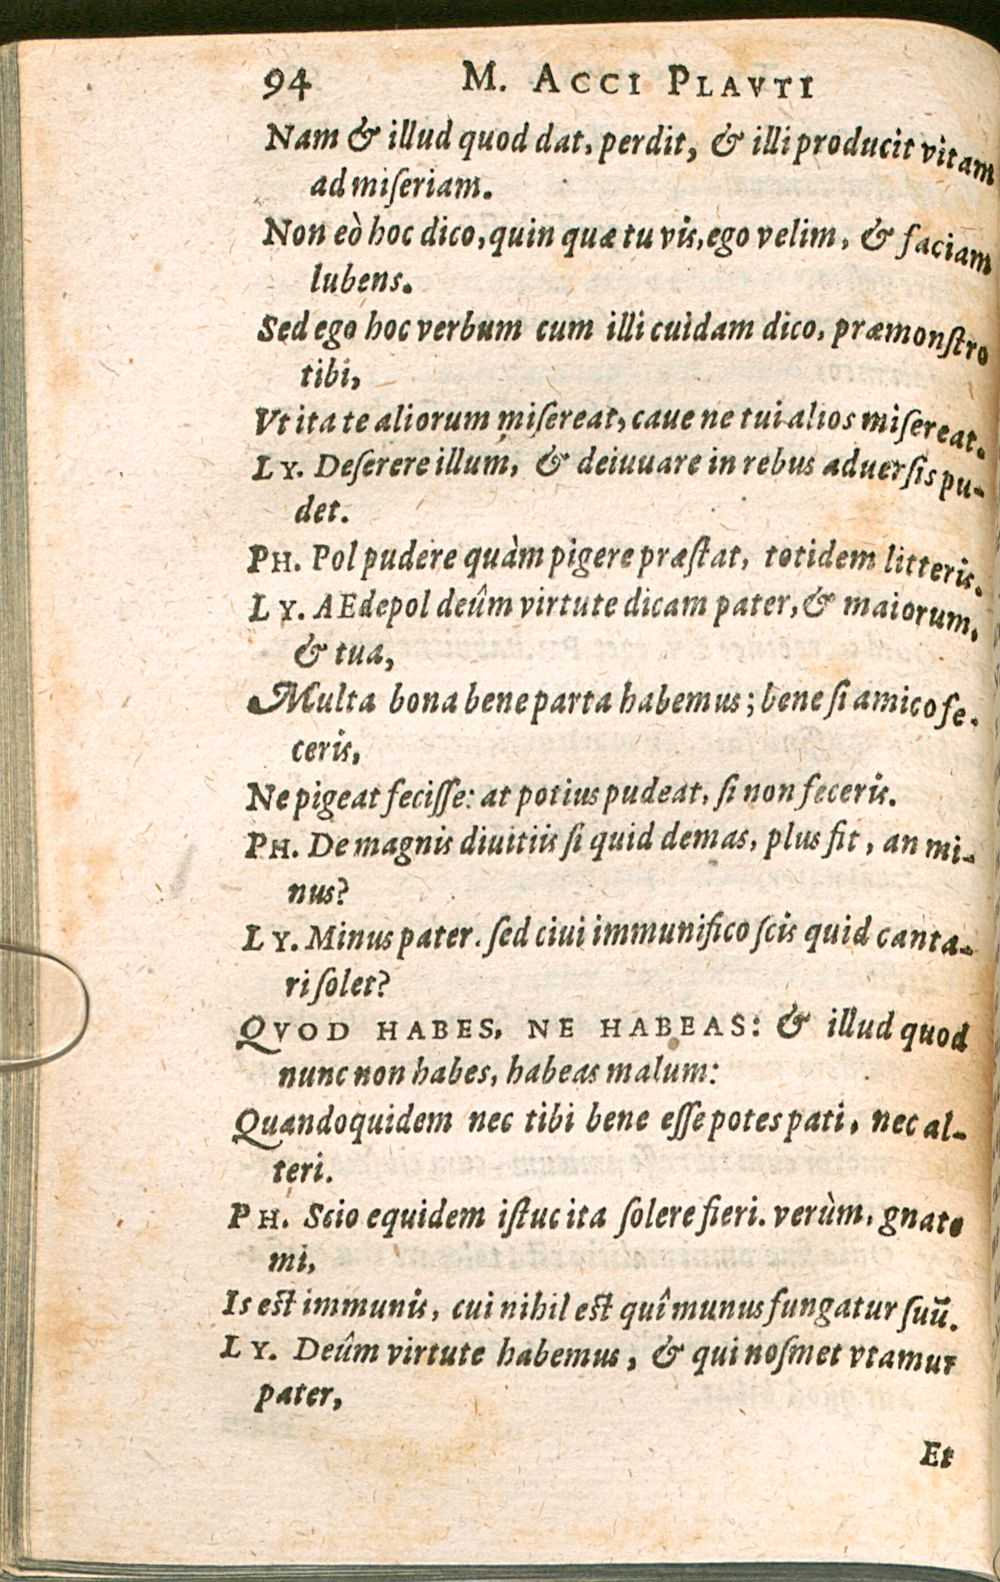 94 M. ACCI PLAVTI
Nam & illud quod dat, perdit, & illi producit vitam
ad miſeriam.
Non eò hoc dico, quin quæ tu vis, ego velim, & faciam
lubens.
Sed ego hoc verbum cum illi cuidam dico, præmonſtro
tibi,
Vt ita te aliorum miſereat, caue ne tui alios miſereat.
LY. Deſerere illum, & deiuuare in rebus aduerſis pu-
det.
PH. Pol pudere quàm pigere præſtat, totidem litteris.
LY. AEdepol deûm virtute dicam pater, & maiorum,
& tua,
Multa bona bene parta habemus; bene ſi amico fe-
ceris,
Ne pigeat feciſſe: at potius pudeat, ſi non feceris.
PH. De magnis diuitiis ſi quid demas, plus fit, an mi-
nus?
LY. Minus pater. ſed ciui immunifico ſcis quid canta-
ri ſolet?
QVOD HABES, NE HABEAS: & illud quod
nunc non habes, habeas malum:
Quandoquidem nec tibi bene eſſe potes pati, nec al-
teri.
PH. Scio equidem iſtuc ita ſolere fieri. verùm, gnate
mi,
Is eſt immunis, cui nihil eſt quî munus fungatur ſuū.
LY. Deûm virtute habemus, & qui noſmet vtamur
pater,
Et